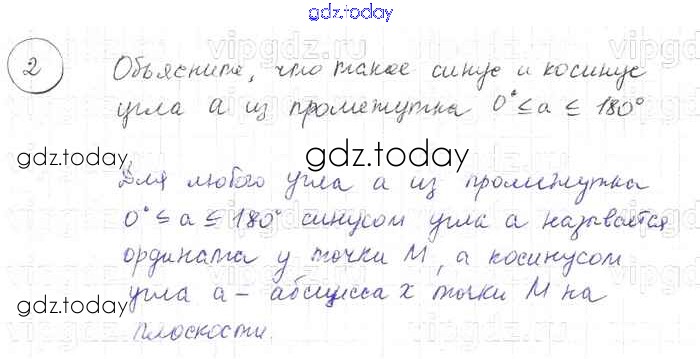 gdz.today
2
Объясните, что такое синус и косинус
угла a из промежутка 0° ≤ a ≤ 180°
gdz.today
gdz.today
Для любого угла a из промежутка
0° ≤ a ≤ 180° синусом угла a называется
ордината y точки M, а косинусом
угла a – абсцисса x точки M на
gdz.today
плоскости.